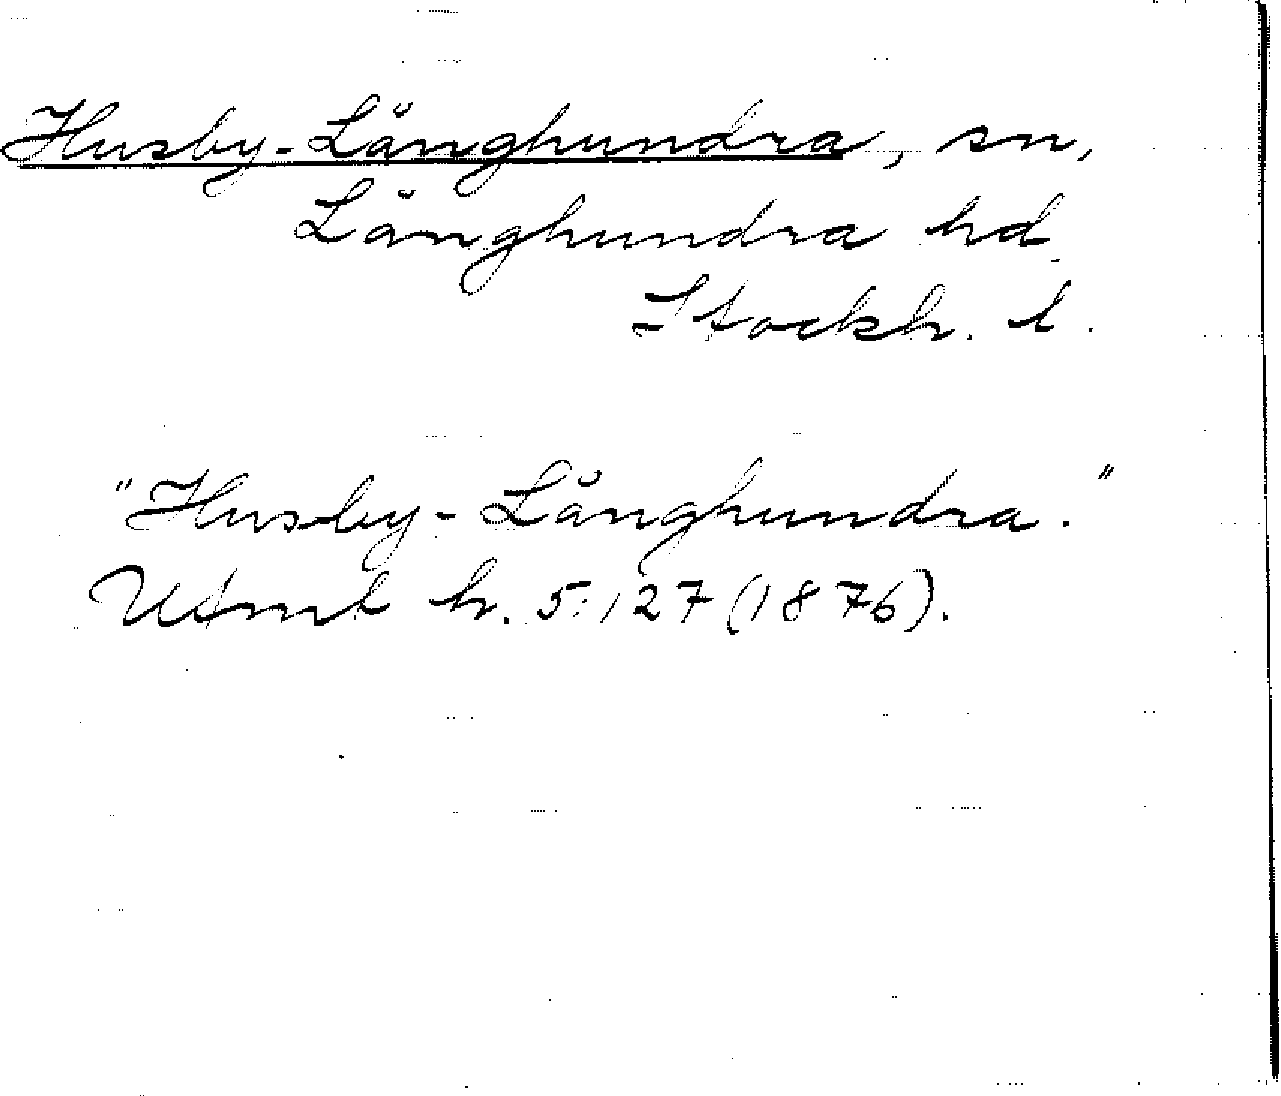 Husby-Långhundra, sn,
Långhundra hd.
Stockh. l.
"Husby-Långhundra."
Utmk h. 5:127 (1876).